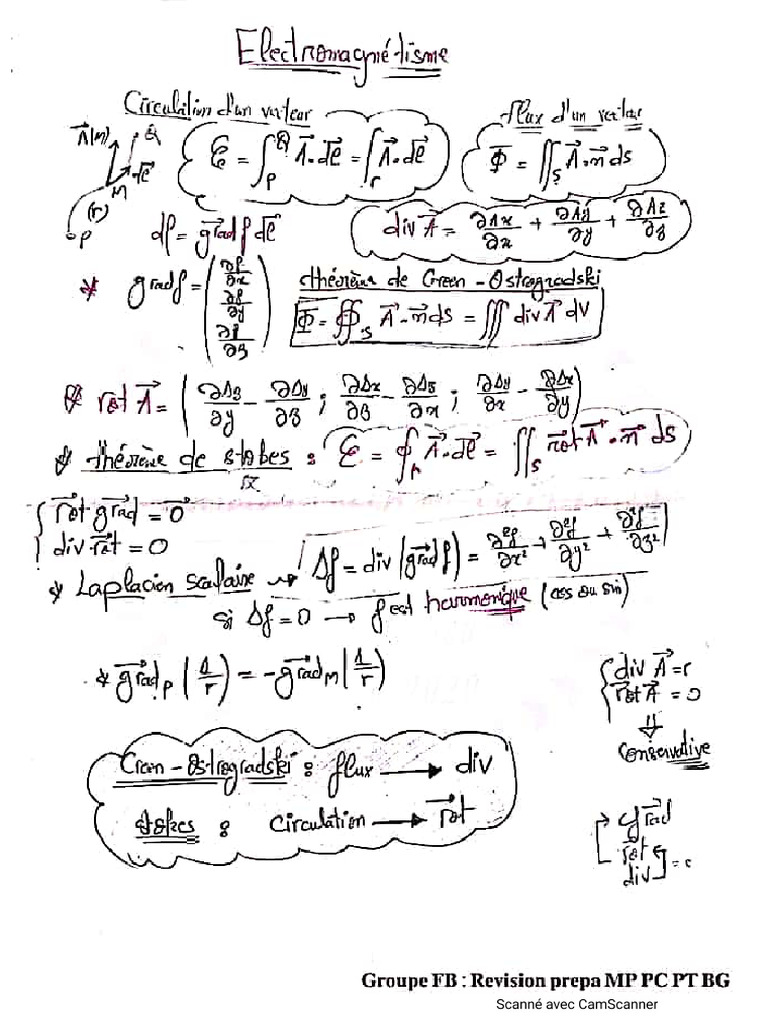 Electromagnétisme
Circulation d'un vecteur
flux d'un vecteur
A⃗(M) Q
dl⃗
M
(Γ)
P
C = ∫_P^Q A⃗·dl⃗ = ∫_Γ A⃗·dl⃗
Φ = ∬_S A⃗·n⃗ ds
df = grad⃗ f dl⃗
div A⃗ = ∂Ax/∂x + ∂Ay/∂y + ∂Az/∂z
* grad f = (∂f/∂x ∂f/∂y ∂f/∂z)
théorème de Green-Ostrogradski
Φ = ∯_S A⃗·n⃗ ds = ∭ div A⃗ dV
* rot A⃗ = (∂Az/∂y - ∂Ay/∂z ; ∂Ax/∂z - ∂Az/∂x ; ∂Ay/∂x - ∂Ax/∂y)
* théorème de stokes : C = ∮_Γ A⃗·dl⃗ = ∬_S rot⃗ A⃗·n⃗ ds
{ rot⃗ grad⃗ = 0⃗
div rot⃗ = 0
* Laplacien scalaire → Δf = div (grad⃗ f) = ∂²f/∂x² + ∂²f/∂y² + ∂²f/∂z²
si Δf = 0 → f est harmonique (cos ou sin)
* grad⃗_P (1/r) = -grad⃗_M (1/r)
{ div A⃗ =
rot⃗ A⃗ = 0
⇓
conservative
Green-Ostrogradski : flux → div
stokes : circulation → rot⃗
grad⃗
rot
div
Groupe FB : Revision prepa MP PC PT BG
Scanné avec CamScanner